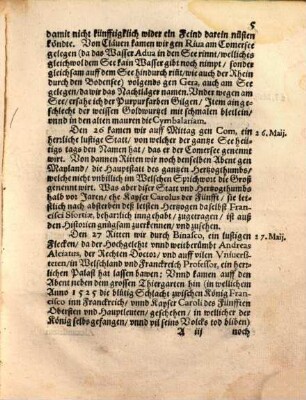 5
damit nicht künfftigklich wider ein Feind darein nüsten
köndte. Von Clüuen kamen wir gen Riua am Comersee
gelegen (da das Wasser Adua in den See rinnt/ welliches
gleichwol dem See kain Wasser gibt noch nimpt/ sonder
gleichsam auff dem See hindurch rint/ wie auch der Rhein
durch den Bodensee) volgends gen Gera, auch am See
gelegen/ da wir das Nachtläger namen. Vnder wegen am
See/ ersahe ich der Purpurfarben Gilgen/ Item ain ge-
schlecht der weissen Goldwurtzel mit schmalen bletlein/
vnnd in den alten mauren die Cymbalariam.
Den 26 kamen wir auff Mittag gen Com, ein
26. Maij.
herrliche lustige Statt/ von welcher der gantze See heü-
tigs tags den Namen hat/ da er der Comersee genennt
wirt. Von dannen Ritten wir noch denselben Abent gen
Mayland/ die Hauptstatt des gantzen Hertzogthumbs/
welche nicht vnbillich in Welschen Sprichwort die Groß
genennt wirt. Was aber diser Statt vnd Hertzogthumbs
halb vor Jaren/ ehe Kayser Carolus der Fünfft/ sie letst-
lich nach absterben deß letsten Hertzogen daselbst Franci-
sci Sfortiæ, beharlich inngehabt/ zugetragen/ ist auß
den Historien gnügsam zuerkennen/ vnd zusehen.
Den 27 Ritten wir durch Binasco, ein lustigen
27. Maij.
Flecken/ da der Hochgelehrt vnnd weitberümbt Andreas
Alciatus, der Rechten Doctor/ vnd auff vilen Vniuersi-
teten/ in Welschland vnd Franckreich Professor, ein herr-
lichen Palast hat lassen bawen: Vnnd kamen auff den
Abent neben dem grossen Thiergarten hin (in wellichem
Anno 1525 die blütig Schlacht zwischen König Fran-
cisco inn Franckreich/ vnnd Kayser Caroli des Fünfften
Obersten vnd Hauptleuten/ geschehen/ in wellicher der
König selbs gefangen/ vnnd vil seins Volcks tod bliben)
A iij noch